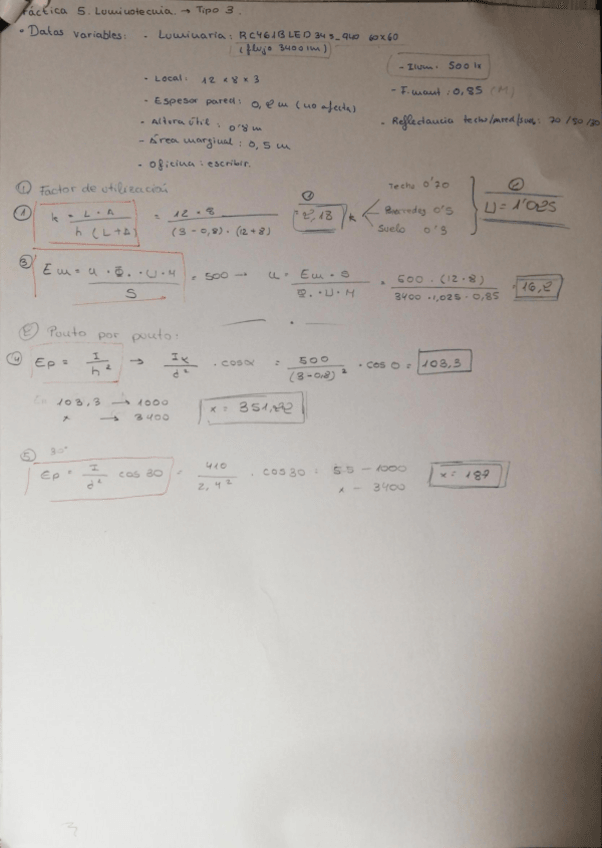 Práctica 5. Luminotecnia. → Tipo 3.
• Datos variables: - Luminaria: RC461B LED 34S_940 60x60
(flujo 3400 lm)
- Ilum. 500 lx
- Local: 12 x 8 x 3
- F. mant: 0,85 (M)
- Espesor pared: 0,2 m (no afecta)
- Altura útil: 0'8 m
• Reflectancia techo/pared/suelo: 70/50/30
- Área marginal: 0,5 m
• Oficina: escribir.
① Factor de utilización
① k = L · A / h (L+A) = 12 · 8 / (3 - 0,8) · (12+8) = 2,18 k
Techo 0'70
Paredes 0'5
Suelo 0'3
② U = 1'025
③ Em = n · Φ. · U · M / S = 500 → n = Em · S / Φ. · U · M = 500 · (12 · 8) / 3400 · 1,025 · 0,85 = 16,2
② Punto por punto:
④ Ep = I / h² → Iα / d² · cosα = 500 / (3-0,8)² · cos 0 = 103,3
103,3 → 1000
x → 3400
x = 351,22
⑤ 30°
Ep = I / d² cos 30 = 410 / 2,4² · cos 30 = 55 - 1000
x - 3400
x = 187
3